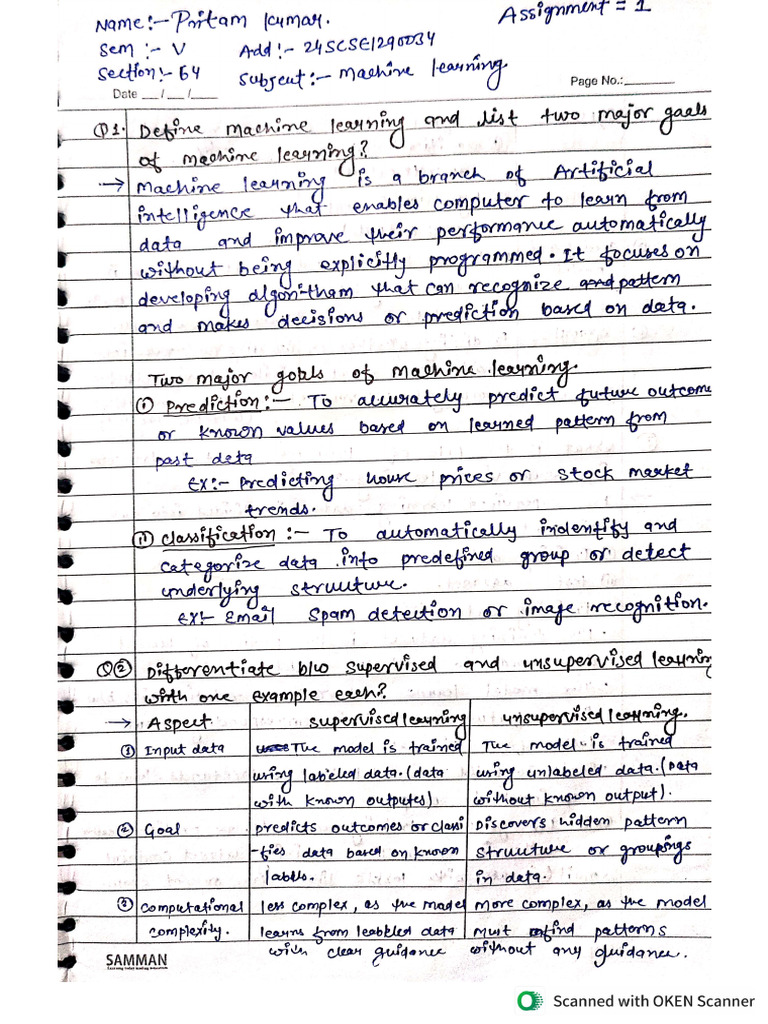 Name:- Pritam Kumar. Assignment = 1
Sem :- V Add:- 24SCSE1290034
Section:- 64 Subject:- Machine learning.
Date __/__/__ Page No.:______
Q1. Define machine learning and list two major goals
of machine learning?
→ Machine learning is a branch of Artificial
intelligence that enables computer to learn from
data and improve their performance automatically
without being explicitly programmed. It focuses on
developing algoritham that can recognize and pattern
and makes decisions or prediction based on data.
Two major goals of machine learning.
(i) Prediction:- To accurately predict future outcome
or known values based on learned pattern from
past data
EX:- Predicting house prices or stock market
trends.
(ii) Classification :- To automatically indentify and
categorize data into predefined group or detect
underlying structure.
EX:- Email Spam detection or image recognition.
Q(2) Differentiate b/w supervised and unsupervised learning
with one example each?
→ Aspect supervised learning unsupervised learning.
(1) Input data The model is trained The model is trained
using labeled data. (data using unlabeled data. (Data
with known outputes) without known output).
(2) Goal predicts outcomes or classi Discovers hidden pattern
-fies data based on known structure or groupings
labels. in data.
(3) Computational less complex, as the model more complex, as the model
complexity. learns from leabled data must find patterns
with clear guidance without any guidance.
SAMMAN
Scanned with OKEN Scanner